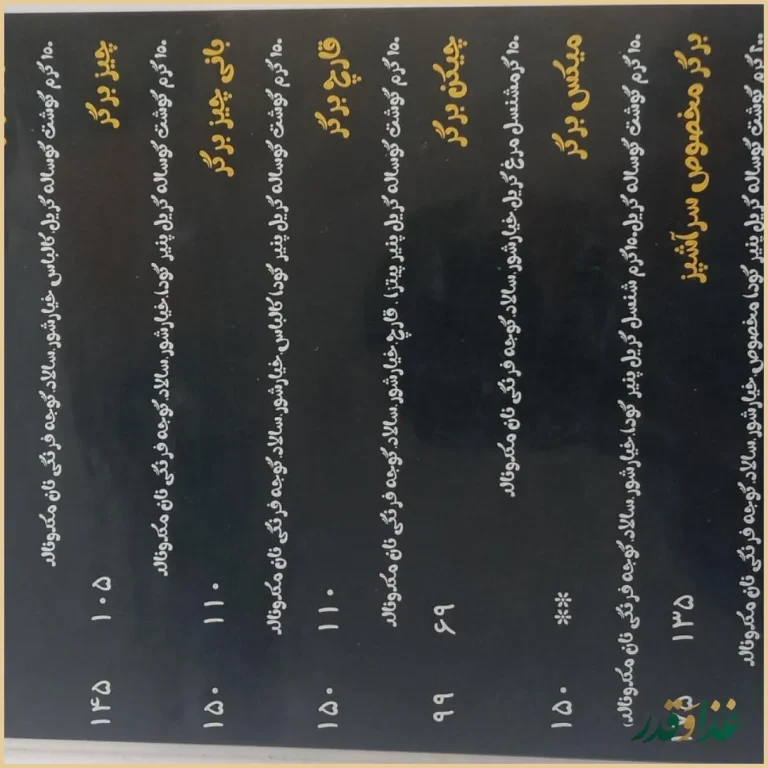 ۱۵۰ گرم گوشت گوساله گریل کالباس خیارشور.سالاد.گوجه فرنگی نان مکدونالد
چیز برگر ۱۰۵ ۱۴۵
۱۵۰ گرم گوشت گوساله گریل پنیر گودا.خیارشور.سالاد.گوجه فرنگی نان مکدونالد
بانی چیز برگر ۱۱۰ ۱۵۰
۱۵۰ گرم گوشت گوساله گریل پنیر گودا کالباس.خیارشور.سالاد.گوجه فرنگی نان مکدونالد
قارچ برگر ۱۱۰ ۱۵۰
۱۵۰ گرم گوشت گوساله گریل پنیر پیتزا . قارچ.خیارشور.سالاد.گوجه فرنگی نان مکدونالد
چیکن برگر ۶۹ ۹۹
۱۵۰ گرمشنسل مرغ گریل.خیارشور.سالاد.گوجه فرنگی نان مکدونالد
میکس برگر ** ۱۵۰
۱۵۰ گرم گوشت گوساله گریل.۱۵۰گرم شنسل گریل پنیر گودا.خیارشور.سالاد.گوجه فرنگی نان مکدونالد)
برگر مخصوص سرآشپز ۱۳۵
۲۰۰ گرم گوشت گوساله گریل پنیر گودا مخصوص.خیارشور.سالاد.گوجه فرنگی نان مکدونالد
غذا و قدر